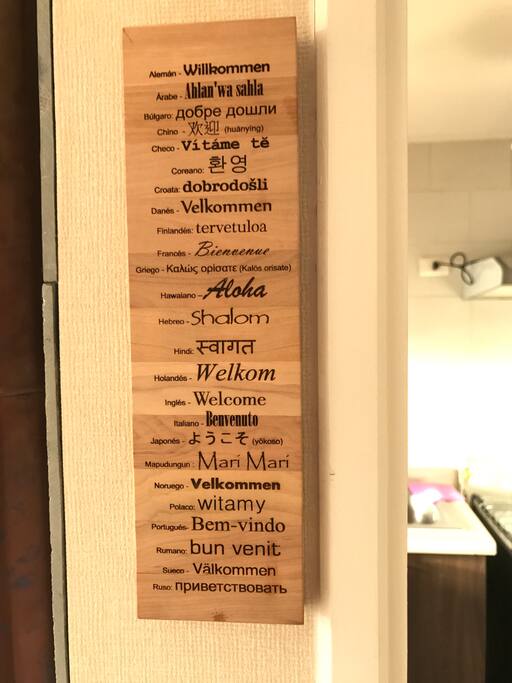 Alemán - Willkommen
Árabe - Ahlan'wa sahla
Búlgaro: добре дошли
Chino - 欢迎 (huānyíng)
Checo - Vítáme tě
Coreano: 환영
Croata: dobrodošli
Danés - Velkommen
Finlandés: tervetuloa
Francés - Bienvenue
Griego - Καλώς ορίσατε (Kalós orisate)
Hawaiano - Aloha
Hebreo - Shalom
Hindi: स्वागत
Holandés - Welkom
Inglés - Welcome
Italiano - Benvenuto
Japonés - ようこそ (yōkoso)
Mapudungun : Mari Mari
Noruego - Velkommen
Polaco: witamy
Portugués- Bem-vindo
Rumano: bun venit
Sueco - Välkommen
Ruso: приветствовать